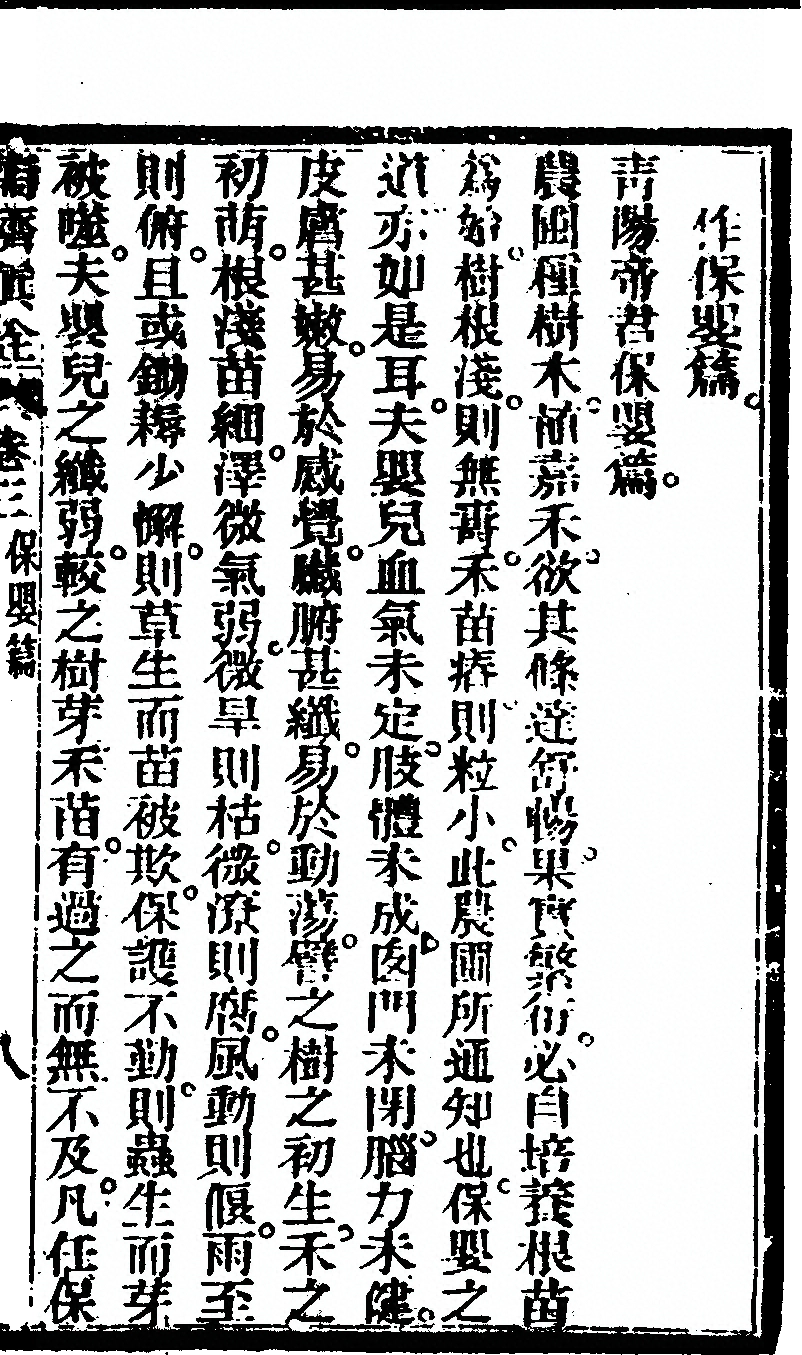 作保嬰篇。
青陽帝君保嬰篇。
農圃種樹木。植嘉禾。欲其條達舒暢。果實繁衍。必自培養根苗
為始。樹根淺。則無壽。禾苗瘠。則粒小。此農圃所通知也。保嬰之
道亦如是耳。夫嬰兒血氣未定。肢體未成。囟門未閉。腦力未健。
皮膚甚嫩。易於感覺。臟腑甚纖。易於動蕩。譬之樹之初生。禾之
初萌。根淺苗細。澤微氣弱。微旱則枯。微潦則腐。風動則偃。雨至
則俯。且或鋤耨少懈。則草生而苗被欺。保護不勤。則蟲生而芽
被噬。夫嬰兒之纖弱。較之樹芽禾苗。有過之而無不及。凡任保
卷三 保嬰篇 八